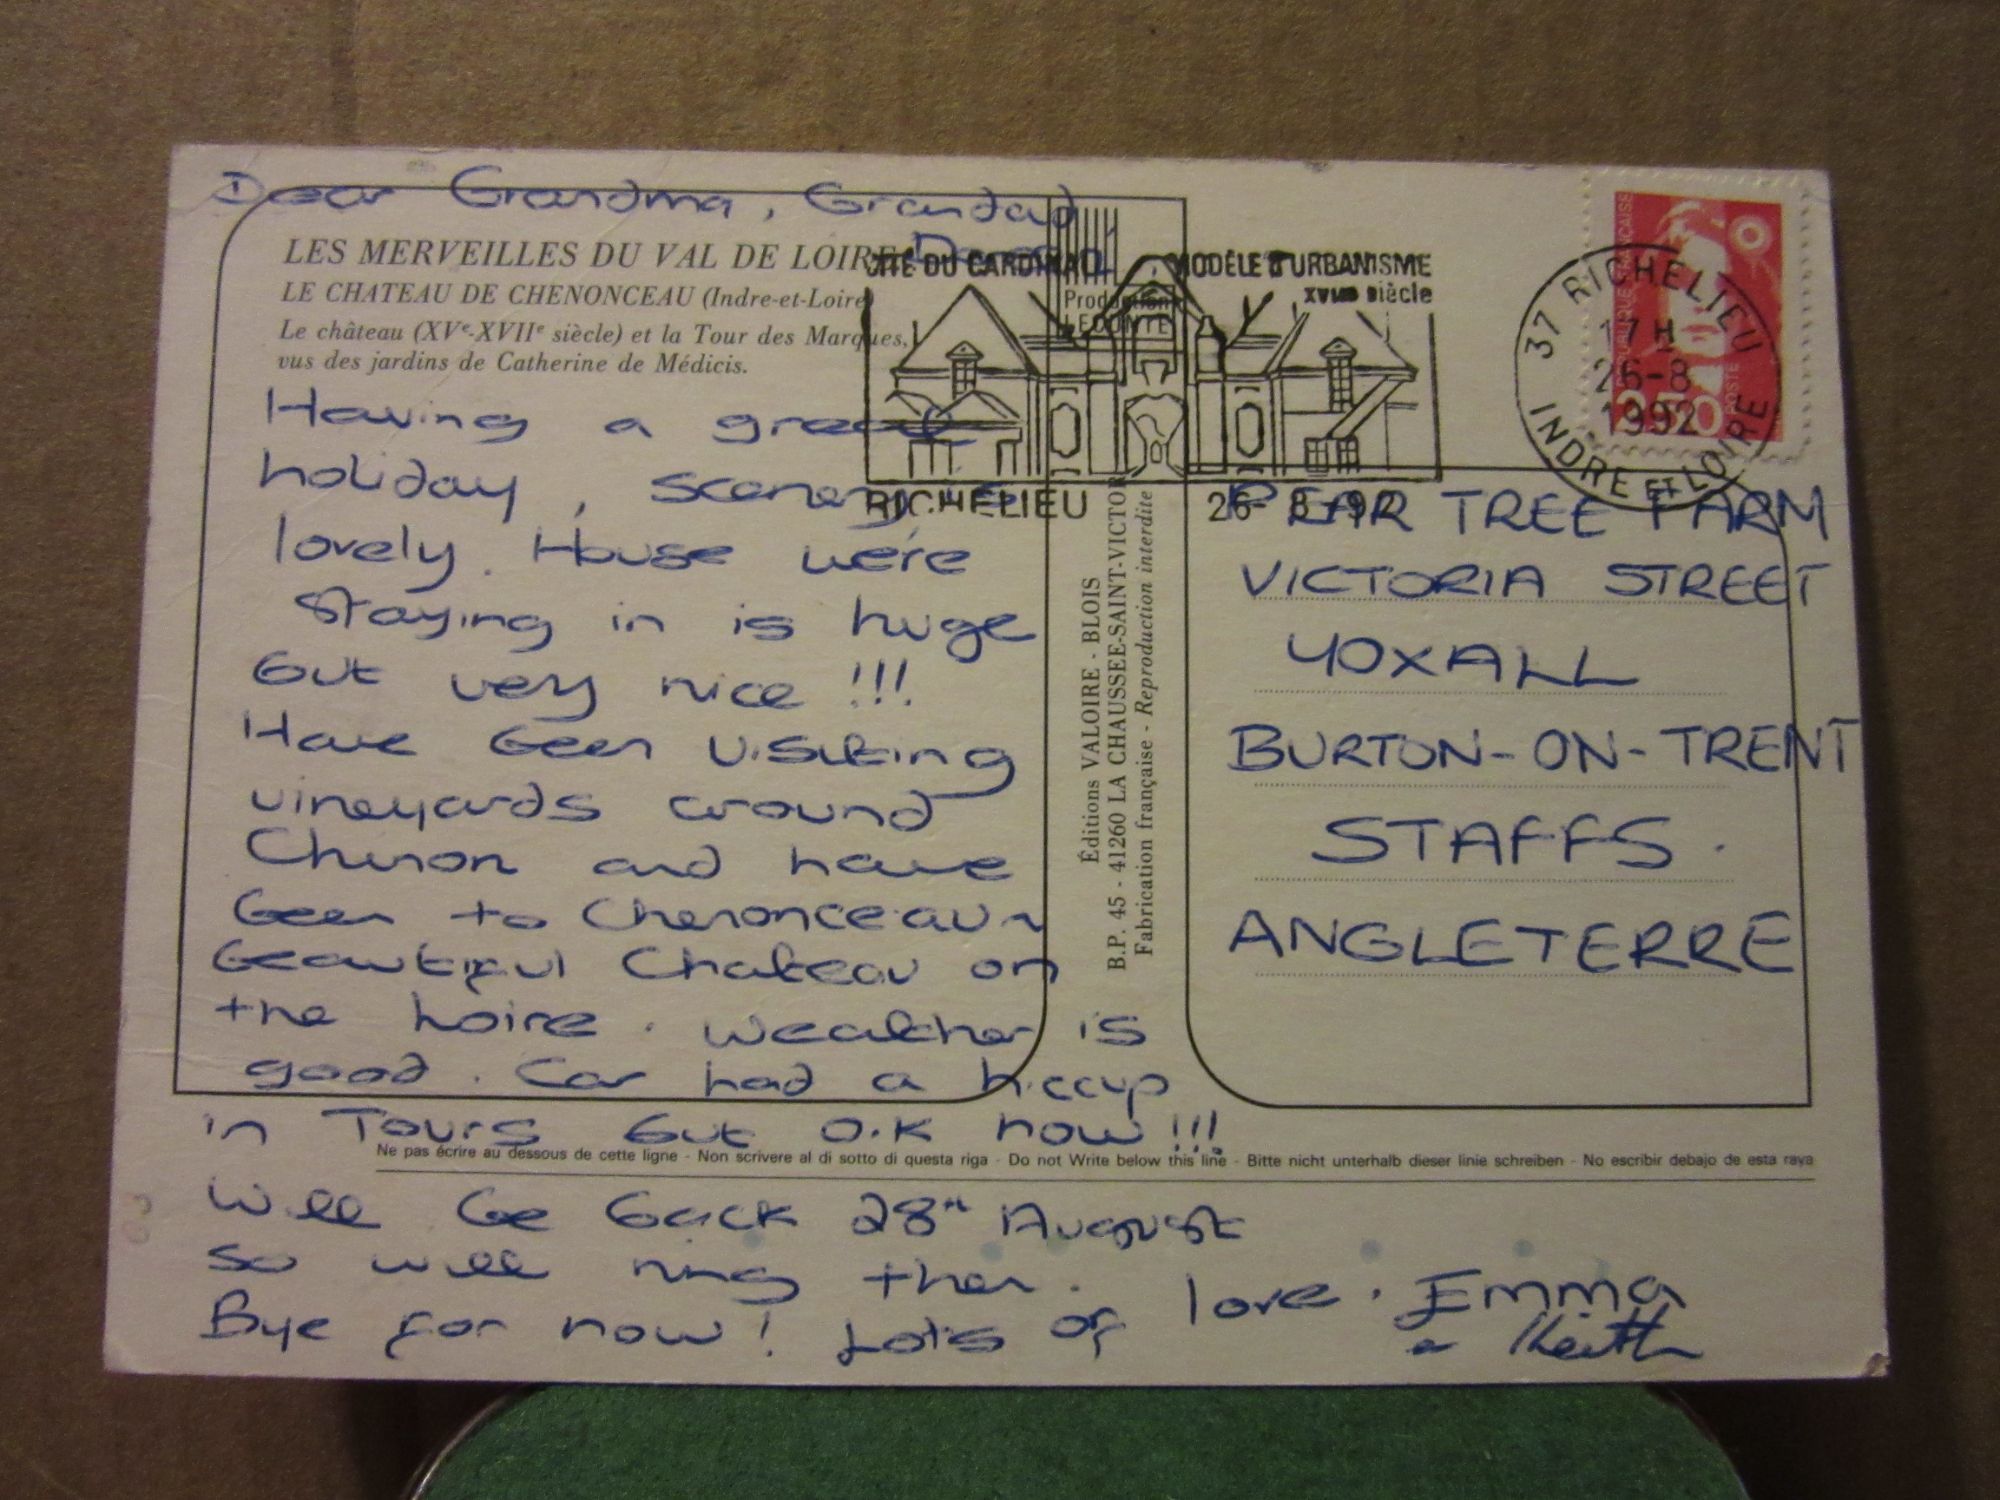 Dear Grandma, Grandad
LES MERVEILLES DU VAL DE LOIRE
LE CHATEAU DE CHENONCEAU (Indre-et-Loire)
Le château (XVe-XVIIe siècle) et la Tour des Marques,
vus des jardins de Catherine de Médicis.
Having a great
holiday, scenery is
lovely. House we're
staying in is huge
but very nice !!!
Have been visiting
vineyards around
Chinon and have
been to Chenonceaux
beautiful Chateau on
the Loire. Weather is
good. Car had a hiccup
in Tours but O.K now !!!
Ne pas écrire au dessous de cette ligne - Non scrivere al di sotto di questa riga - Do not Write below this line - Bitte nicht unterhalb dieser linie schreiben - No escribir debajo de esta raya
Will be back 28th August
so will ring then.
Bye for now! Lots of love. Emma
& Keith
Production
LECONTE
Éditions VALOIRE - BLOIS
B.P. 45 - 41260 LA CHAUSSEE-SAINT-VICTOR
Fabrication française - Reproduction interdite
CITÉ DU CARDINAL MODÈLE D'URBANISME
XVIIe siècle
RICHELIEU 26-8-92
37 RICHELIEU
17H
26-8
1992
INDRE ET LOIRE
RÉPUBLIQUE FRANÇAISE
2,50
POSTE
PEAR TREE FARM
VICTORIA STREET
YOXALL
BURTON-ON-TRENT
STAFFS.
ANGLETERRE